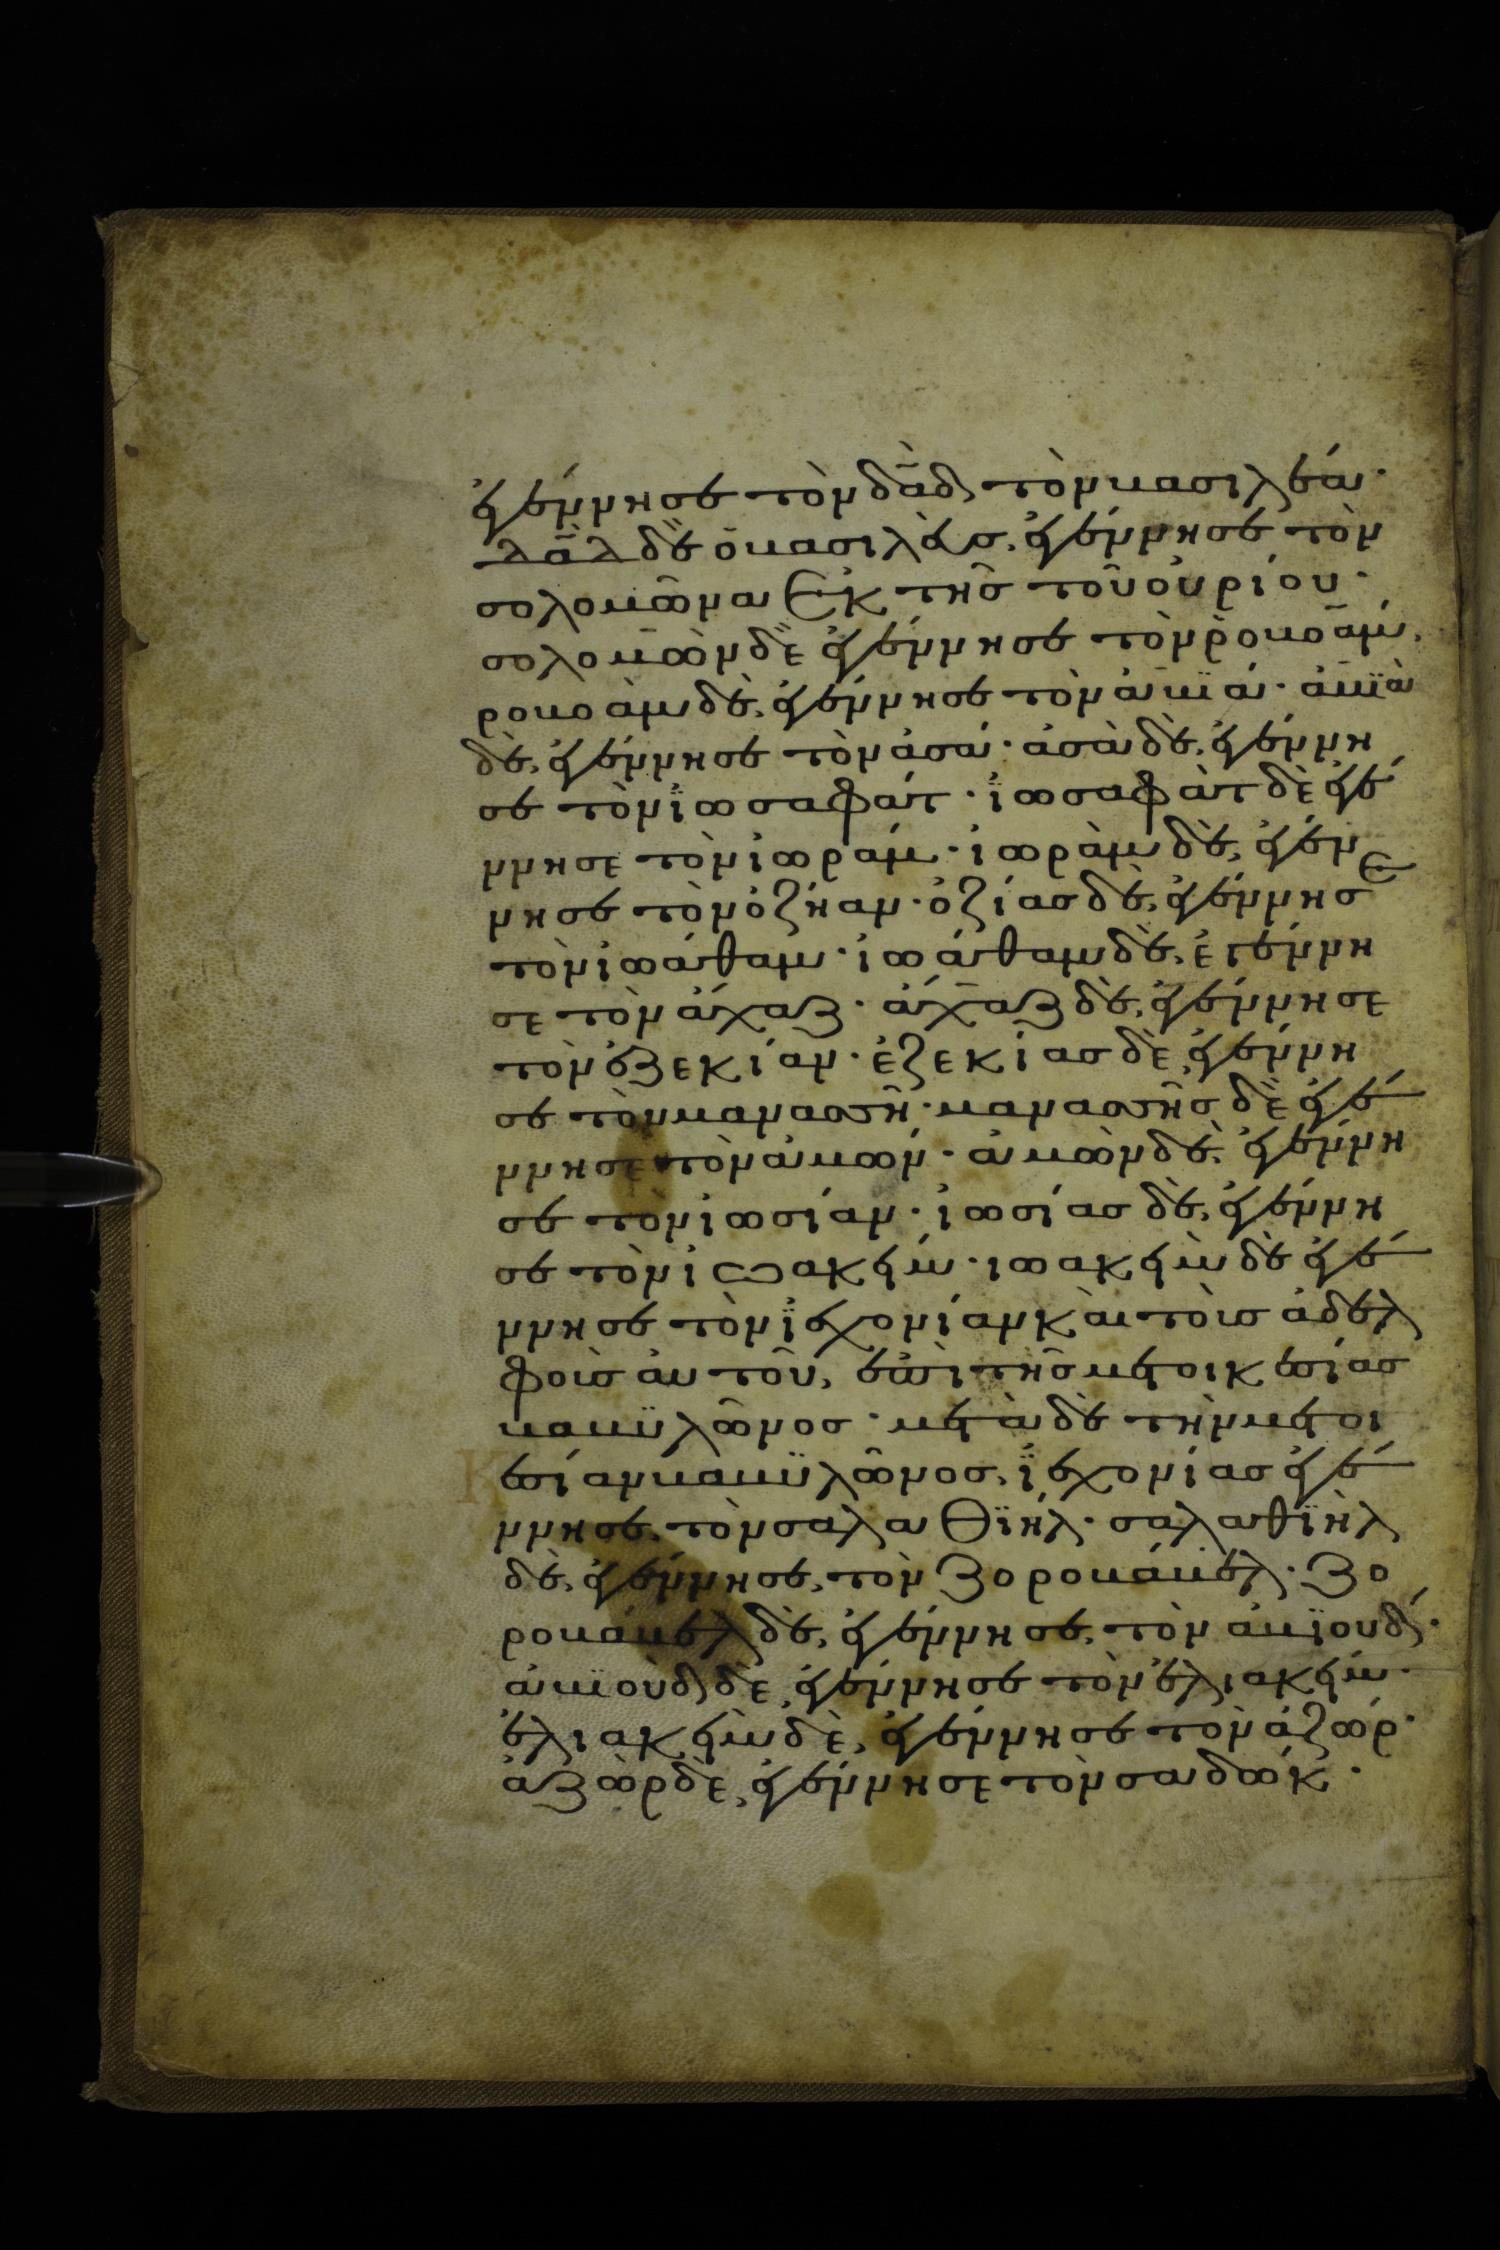 ἐγέννησε τὸν δα̅δ̅ τὸν βασιλέα·
δα̅δ̅ δὲ ὁ βασιλεὺσ, ἐγέννησε τὸν
σολομῶνα ἐκ τῆσ τοῦ οὐρίου·
σολομὼν δὲ ἐγέννησε τὸν ῥοβοάμ,
ροβοὰμ δὲ, ἐγέννησε τὸν ἀβϊά· ἀβϊὰ
δὲ, ἐγέννησε τὸν ἀσά· ἀσὰ δὲ, ἐγέννη
σε τὸν ἰωσαφάτ· ἰωσαφὰτ δὲ ἐγέ
ννησε τὸν ἰωράμ· ἰωρὰμ δὲ, ἐγέν
νησε τὸν ὀζήαν· ὀζίασ δὲ, ἐγέννησε
τὸν ἰωάθαμ· ἰωάθαμ δὲ, ἐγέννη
σε τὸν ἄχαζ· ἄχαζ δὲ, ἐγέννησε
τὸν ἐζεκίαν· ἐζεκίασ δὲ, ἐγέννη
σε τὸν μανασσῆ· μανασσῆσ δὲ ἐγέ
ννησε τὸν ἀμών· ἀμὼν δὲ, ἐγέννη
σε τὸν ἰωσίαν· ἰωσίασ δὲ, ἐγέννη
σε τὸν ἰωακείμ· ιωακεὶμ δὲ ἐγέ
ννησε τὸν ἰεχονίαν καὶ τοὶσ ἀδελ
φοὶσ αὐτοῦ, ἐπὶ τῆσ μετοικεσίασ
βαβϋλῶνοσ· μετὰ δὲ τὴν μετοι
εσίαν βαβϋλῶνοσ, ἰεχονίασ ἐγέ
ννησε, τὸν σαλαθϊήλ· σαλαθϊὴλ
δὲ, ἐγέννησε, τὸν ζοροβάβελ· ζο
ροβάβελ δὲ, ἐγέννησε, τὸν ἀβϊουδ·
ἀβϊοὺδ δὲ, ἐγέννησε τὸν ἐλιακείμ·
ἐλιακεὶμ δὲ, ἐγέννησε τὸν ἀζώρ·
ἀζὼρ δὲ, ἐγέννησε τὸν σαδώκ·